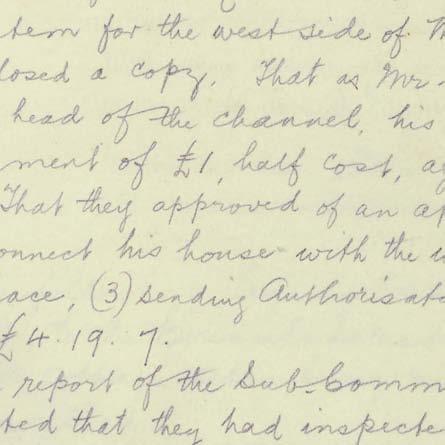 tem for the west side of
losed a copy. That as Mr.
head of the channel, his
ment of £1, half cost, a
That they approved of an ap
onnect his house with the
ace, (3) sending Authorisat
£4. 19. 7.
report of the Sub-Comm
ted that they had inspecte